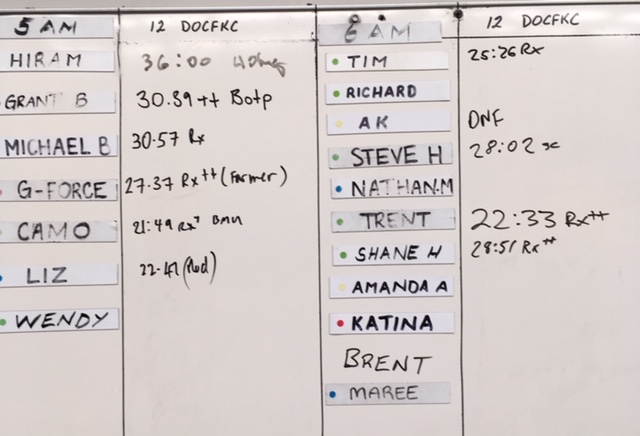 5 AM
12 DOCFKC
HIRAM
36:00 40kg
GRANT B
30.39 ++ Botp
MICHAEL B
30.57 Rx
G-FORCE
27.37 Rx++ (Farmer)
CAMO
21:49 Rx+
LIZ
22.41
WENDY
6 AM
12 DOCFKC
TIM
25:26 Rx
RICHARD
AK
DNF
STEVE H
28:02 sc
NATHAN.M
TRENT
22:33 Rx++
SHANE H
28:51 Rx++
AMANDA A
KATINA
BRENT
MAREE